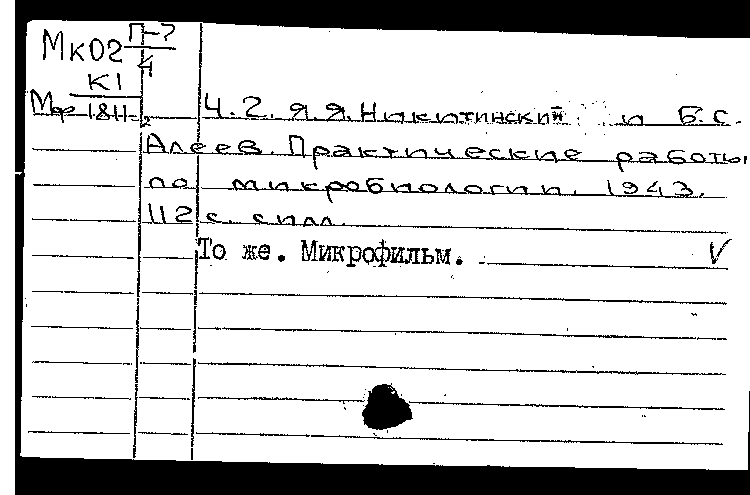 Мк02 П-7/4
К1
Мф 1811-2 Ч.2. Я.Я.Никитинский и Б.С.
Алеев. Практические работы
по микробиологии. 1943.
112 с. с илл.
То же. Микрофильм. V